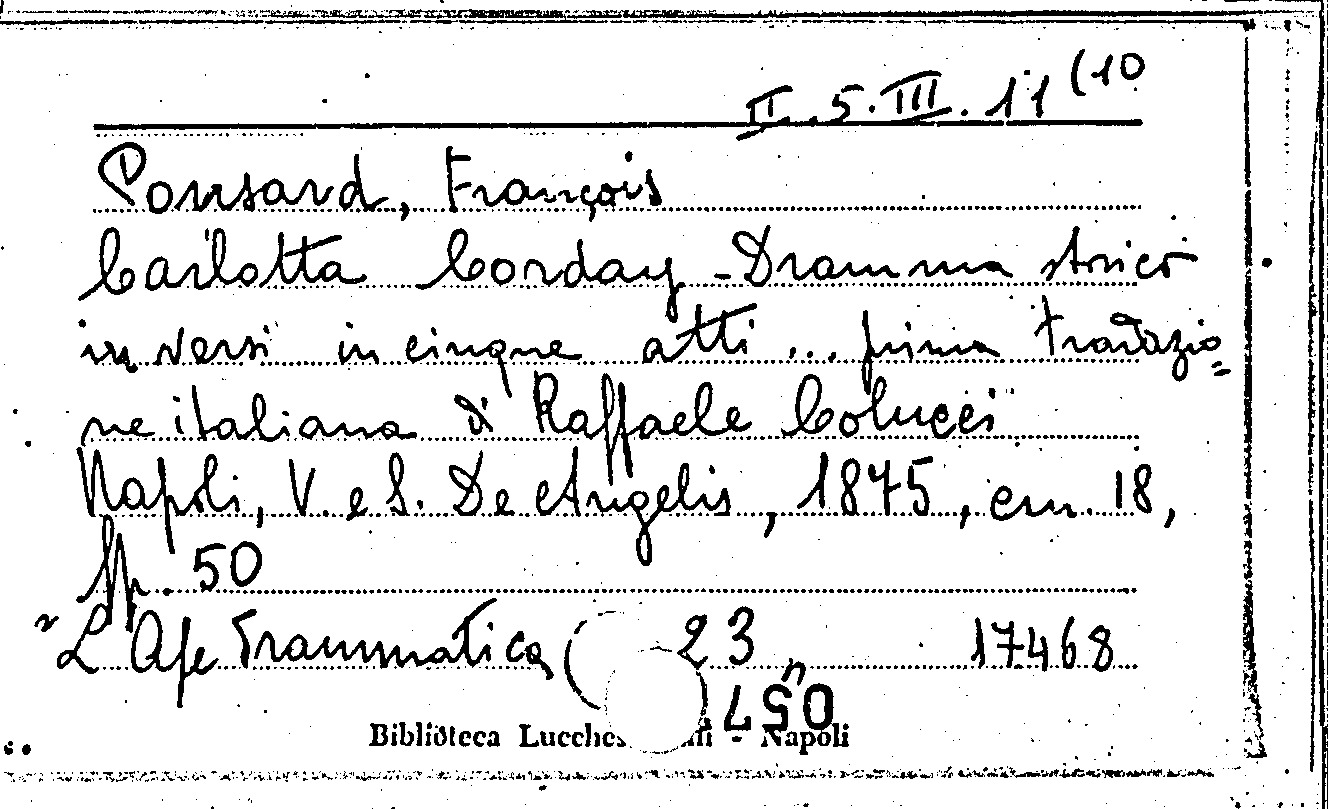 II.5.III.11(10
Ponsard, François
Carlotta Corday - Dramma storico
in versi in cinque atti ... prima traduzio=
ne italiana di Raffaele Colucci
Napoli, V. e S. De Angelis, 1875, cm. 18,
pp. 50
"L'Ape Drammatica, 23" 17468
057
Biblioteca Lucches - Napoli